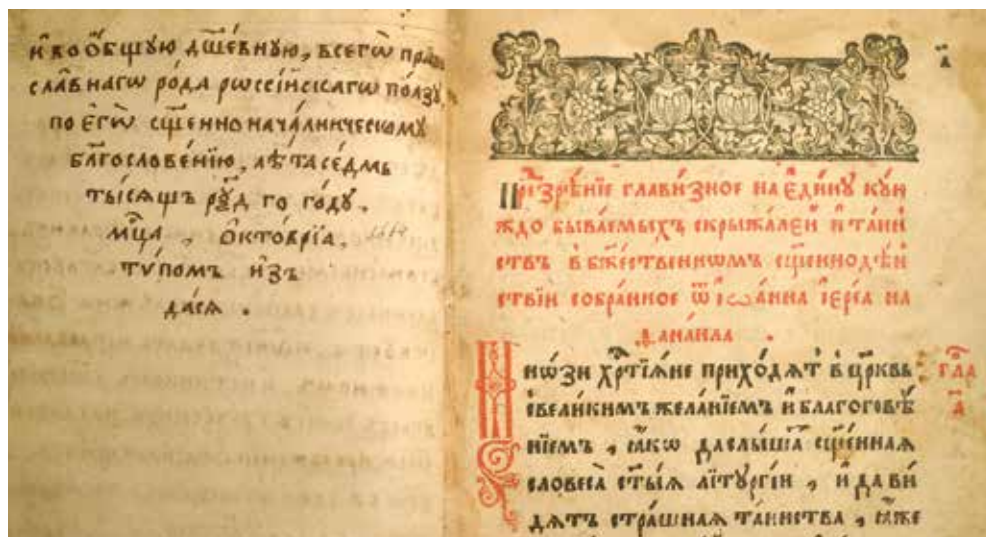 и҆ во о҆́бщꙋю дш҃е́внꙋю, всегѡ̀ пра
сла́внагѡ ро́да рѡссі́йскагѡ по́лзꙋ
по є҆гѡ̀ сщ҃е́ннонача́лническомꙋ
бл҃гослове́нїю, лѣ́та се́дмь
ты́сѧщъ рѯ҃д го го́дꙋ.
мц҃а, ѻ҆кто́врїа,
тѵ́помъ и҆зъ
да́сѧ.
а҃
Пр́їзрѣ́нїе глави́зное на є҆ди́нꙋ кꙋ́и
ждо быва́емыхъ скрыжа́лей и҆ та́ин
ствъ в бж҃е́ственнѡмъ сщ҃еннодѣ́и
ствїи собра́нное ѿ і҆ѡа́нна і҆ере́а на
ѳана́ила.
Мнѡ́зи хрⷭ҇тїѧ́не прихо́дѧт в цр҃ковь
с вели́кимъ жела́нїемъ и҆ благоговѣ́
нїемъ, ꙗ҆́кѡ да слы́шат сщ҃е́ннаѧ
словеса̀ ст҃ы́ѧ лїтꙋргі́и, и҆ да ви
дѧтъ стра́шнаѧ та́инства, ꙗ҆́же
гла
а҃